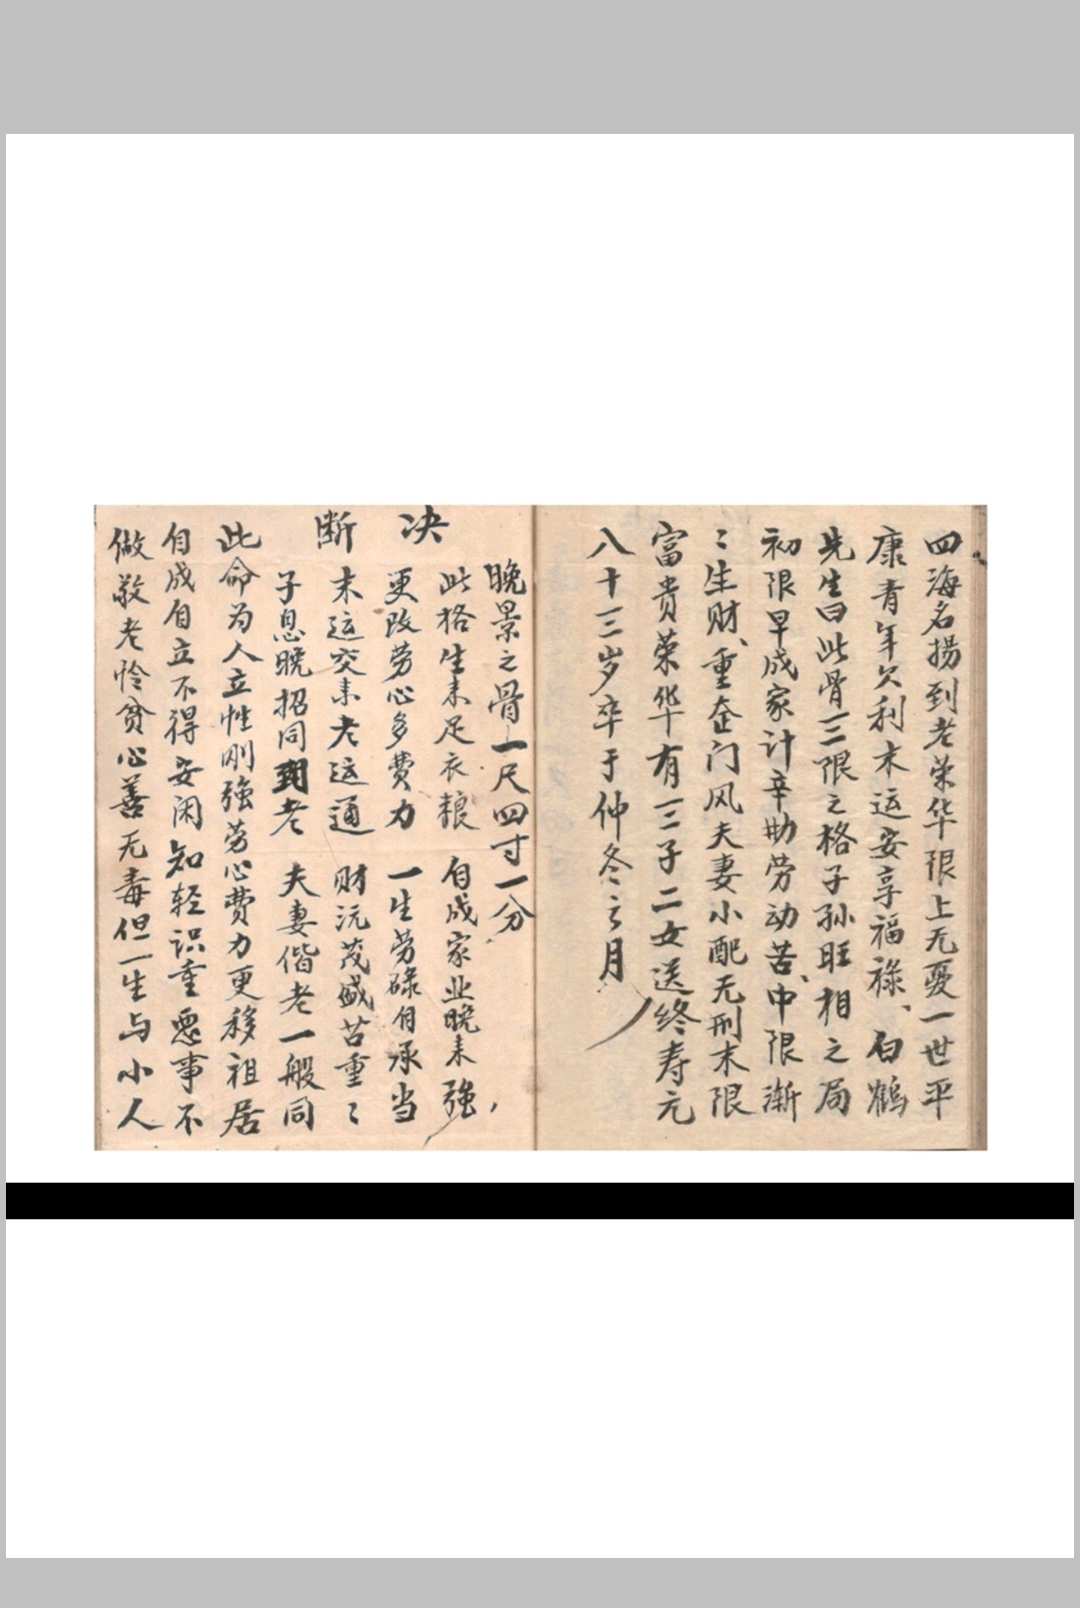 四海名揚到老荣华限上无憂一世平
康青年欠利末运安享福禄、白鹤
先生曰此骨三限之格子孙旺相之局
初限早成家计辛勤劳动苦、中限渐
〻生财、重企门风夫妻小配无刑末限
富贵荣华有三子二女送终寿元
八十三岁卒于仲冬之月
晚景之骨一尺四寸一分
决断
此格生来足衣粮 自成家业晚来强，
更改劳心多費力 一生劳碌自承当
末运交来老运通 财沅茂盛苦重〻
子息晚招同到老 夫妻偕老一般同
此命为人立性刚強劳心費力更移祖居
自成自立不得安闲知轻识重恶事不
做敬老怜贫心善无毒但一生与小人